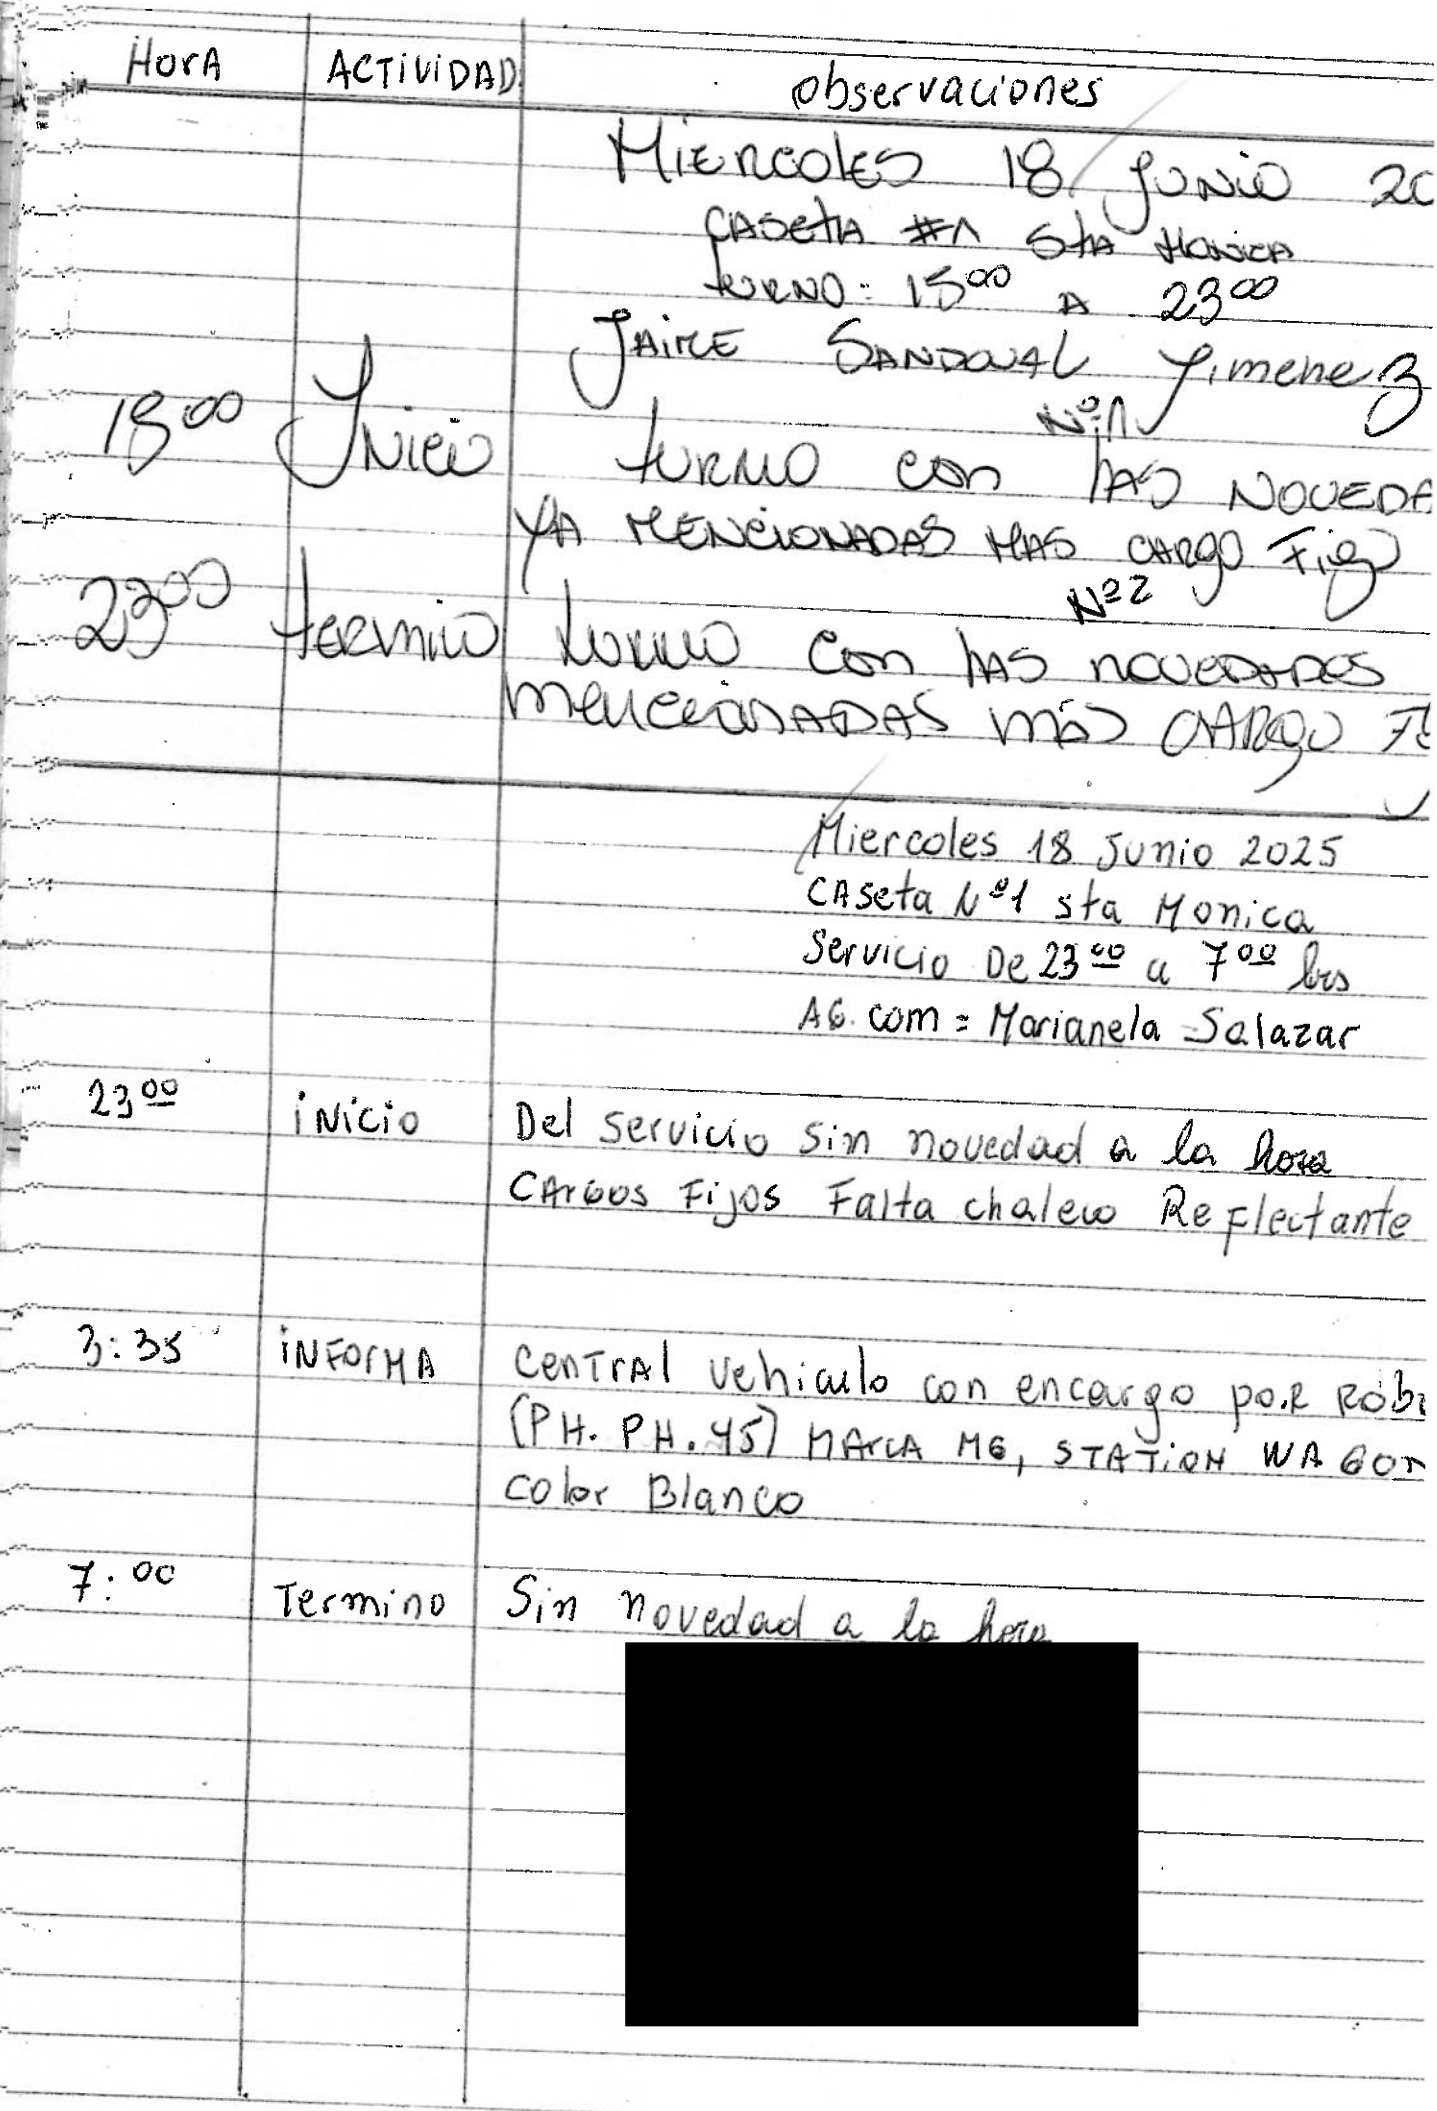 HorA ACTiViDAD observaciones
MiERcoles 18 Junio 20
CASETA #1 StA MONICA
turno: 1500 A 2300
JAIME SANDOVAL Jimenez
Nº1
1500 Inicio turno con lAS NOVEDA
YA MENCIONADAS MAS CARGO Fijo
Nº2
2300 termino turno con lAS NOVEDADES
MENCIONADAS MáS CARGO Fi
Miercoles 18 Junio 2025
CAseta Nº1 sta Monica
Servicio De 2300 a 700 hrs
AG. com = Marianela Salazar
2300 iNicio Del servicio sin novedad a la hora
CArGos Fijos Falta chaleco Reflectante
3:35 iNForMA CenTrAl vehiculo con encargo por Rob
(PH. PH. 45) MArcA MG, STATiON WAGon
color Blanco
7:00 Termino Sin novedad a la hora